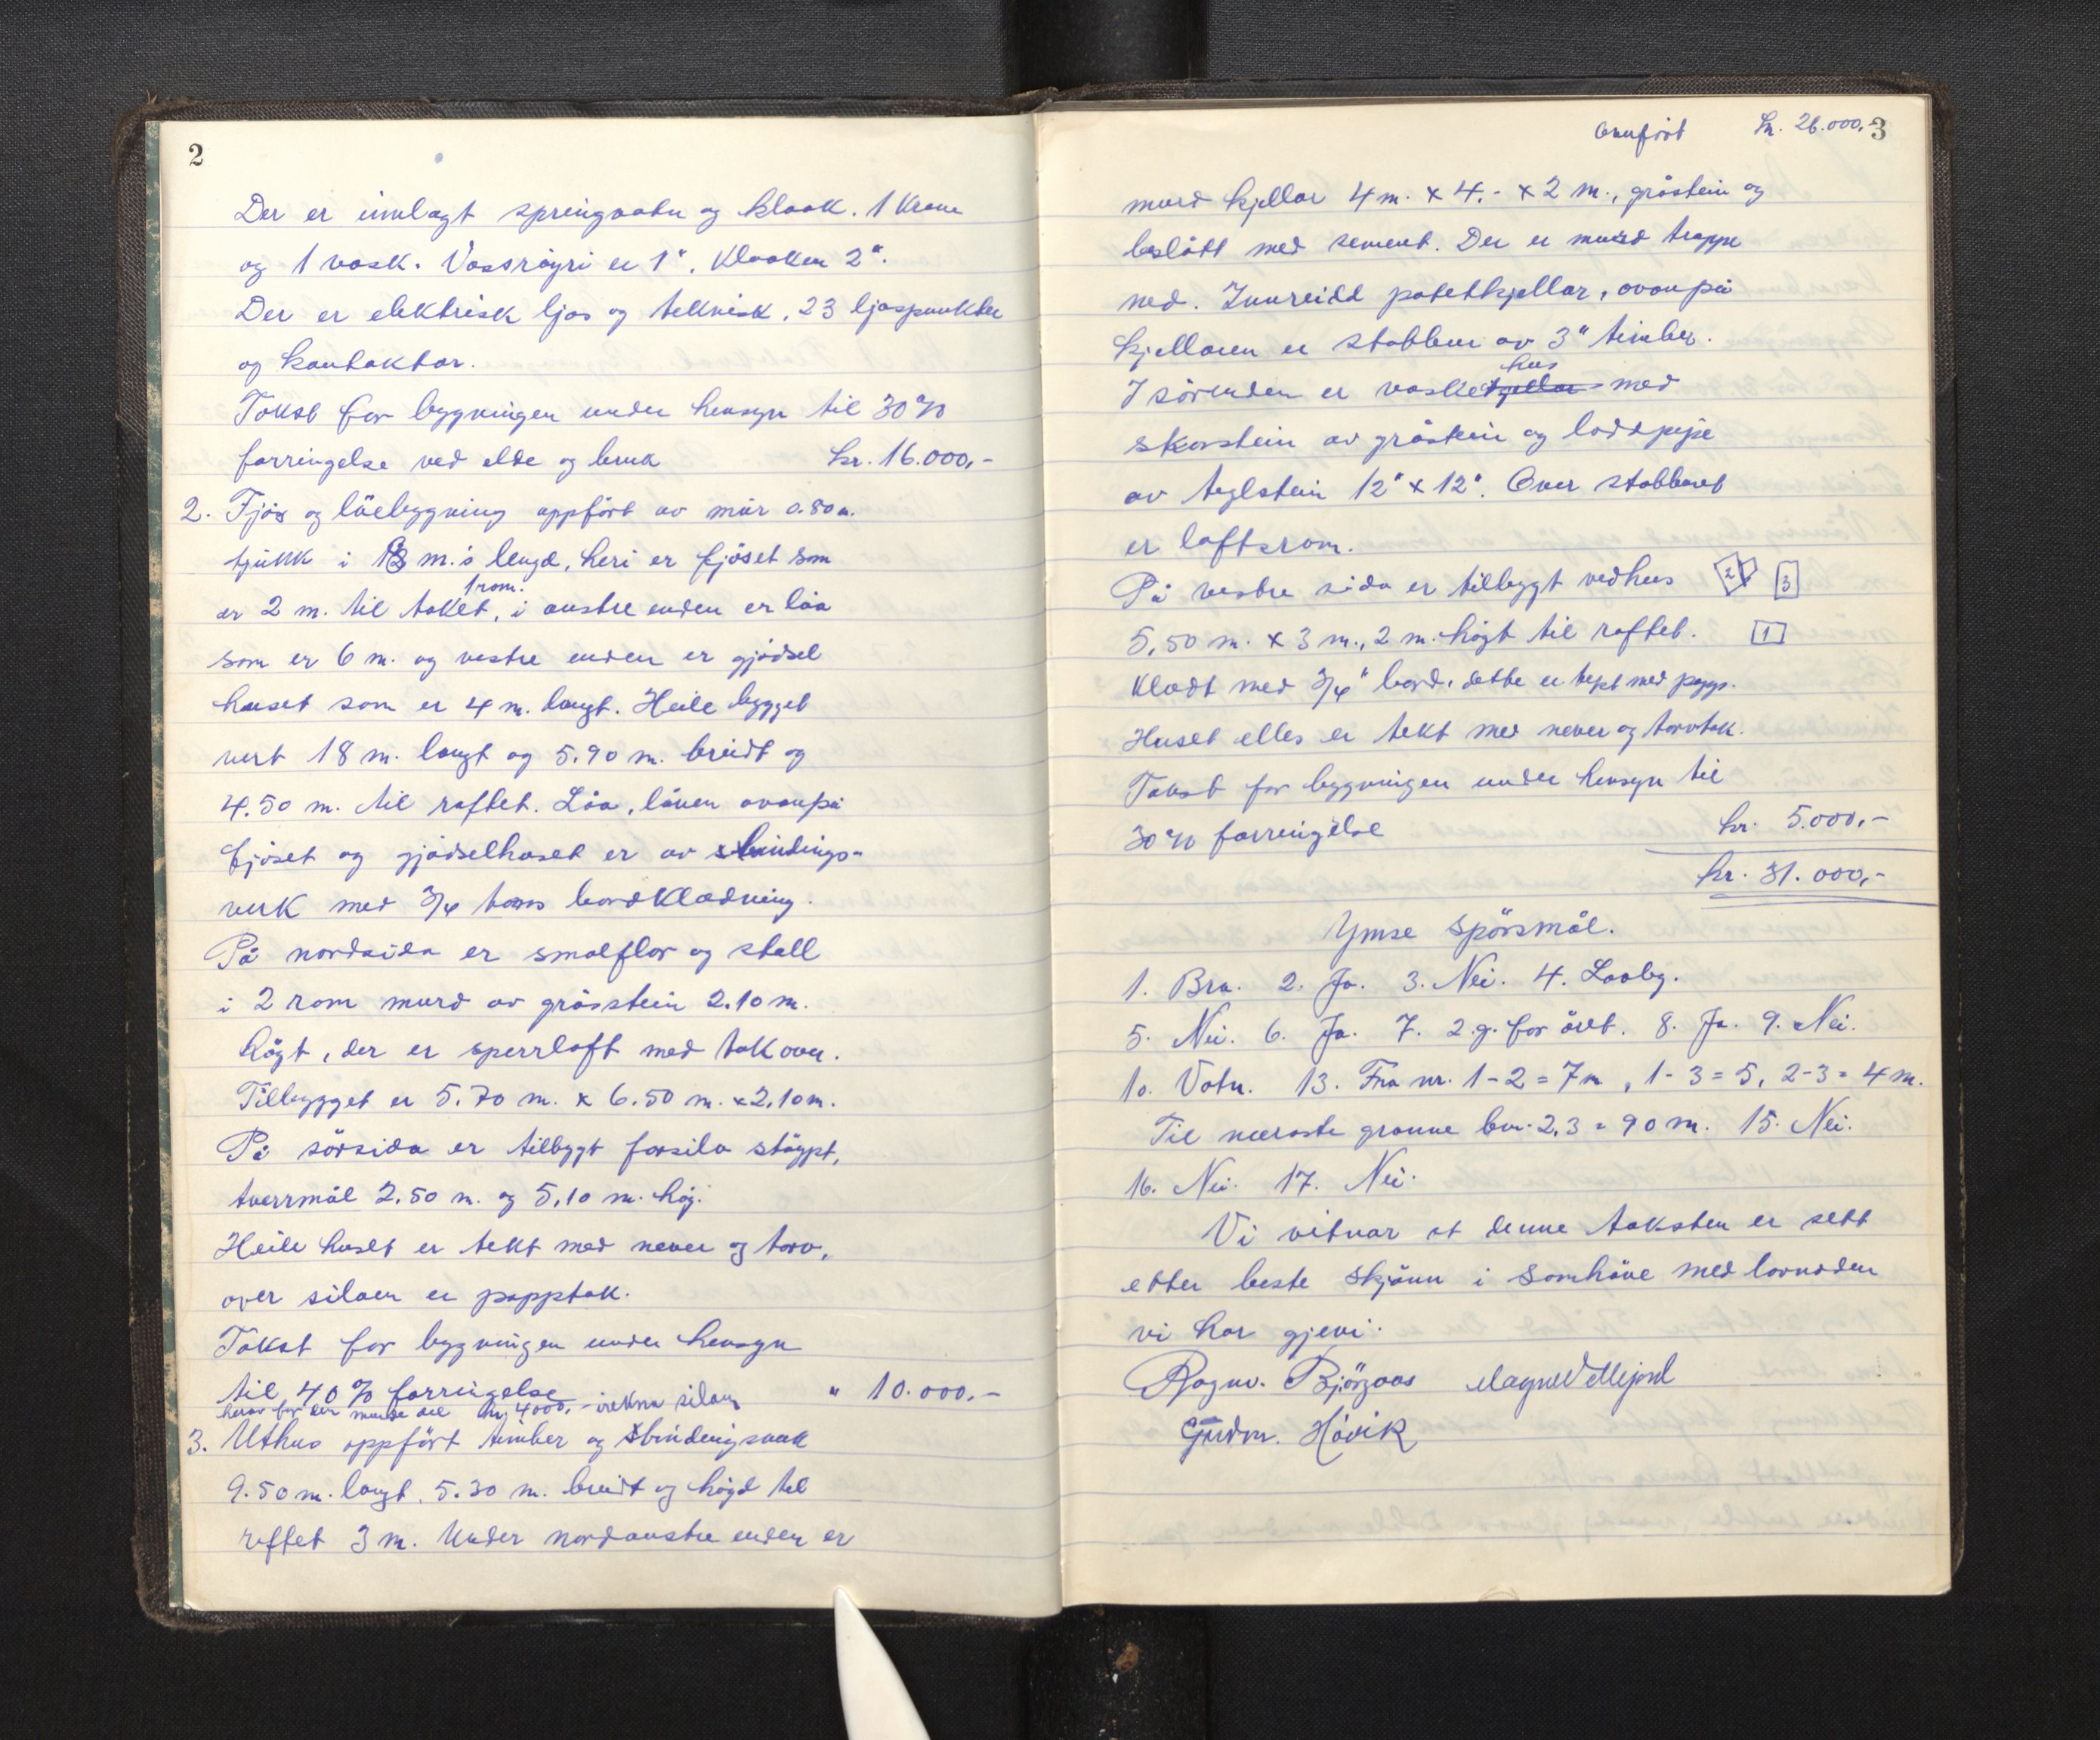 2
Der er innlagt springvatn og kloak. 1 Krane
og 1 vask. Vassröyri er 1". Kloaken 2".
Der er elektrisk ljos og teknisk. 23 ljospunkter
og kontaktar.
Takst for bygningen under hensyn til 30%
forringelse ved elde og bruk kr. 16.000,-
2. Fjös og löebygning oppfört av mur 0.80 m.
tjukk i 18 m.s lengd, heri er fjöset som
1 rom.
er 2 m. til taket, i austre enden er löa
som er 6 m. og vestre enden er gjödsel
huset som er 4 m. langt. Heile bygget
vert 18 m. langt og 5.90 m. breidt og
4.50 m. til raftet. Löa, låven ovanpå
fjöset og gjödselhuset er av bindings-
verk med 3/4 toms bordklædning.
På nordsida er smalflor og stall
i 2 rom murd av gråstein 2.10 m.
högt, der er sperrloft med tak over.
Tilbygget er 5.70 m. x 6.50 m. x 2.10 m.
På sörsida er tilbygt forsilo stöypt,
tverrmål 2.50 m. og 5.10 m. hög.
Heile huset er tekt med never og torv,
over siloen er papptak.
Takst for bygningen under hensyn
til 40% forringelse " 10.000,-
herav for den murde del kr. 4000,- irekna siloen
3. Uthus oppfört timber og bindingsverk
9.50 m. langt. 5.30 m. breidt og högd til
raftet 3 m. Under nordaustre enden er
Overfört kr. 26.000,- 3
murd kjellar 4 m. x 4.- x 2 m., gråstein og
beslått med sement. Der er murd trappe
ned. Innreidd potetkjellar, ovanpå
kjellaren er stabbur av 3" timber.
hus
I sörenden er vaskekjellar med
skorstein av gråstein og loddpipe
av teglstein 12" x 12". Over stabburet
er loftsrom.
På vestre sida er tilbygt vedhus 2 3
5,50 m. x 3 m., 2 m. högt til raftet. 1
Klædt med 3/4" bord, dette er tekt med papp.
Huset elles er tekt med never og torvtak.
Takst for bygningen under hensyn til
30% forringelse kr. 5.000,-
kr. 31.000,-
Ymse spörsmål.
1. Bra. 2. Ja. 3. Nei. 4. Lauby.
5. Nei. 6. Ja. 7. 2 g. for året. 8. Ja. 9. Nei.
10. Vatn. 13. Fra nr. 1-2 = 7 m, 1-3 = 5, 2-3 = 4 m.
Til næraste granne bnr. 2,3 = 90 m. 15. Nei.
16. Nei. 17. Nei.
Vi vitnar at denne taksten er sett
etter beste skjönn i samhöve med lovnaden
vi har gjevi.
Ragnv. Björgaas
Gudm. Hövik